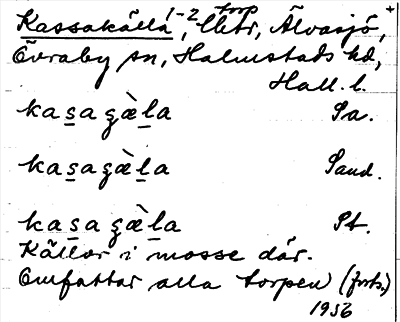 Kassakälla 1-2, torp, Uetr, Älvasjö, +
Övraby sn, Halmstads hd,
Hall. l.
kasagàla Sa.
kasagàla Sand.
kasagàla St.
Källor i mosse där.
Omfattar alla torpen (forts.)
1956